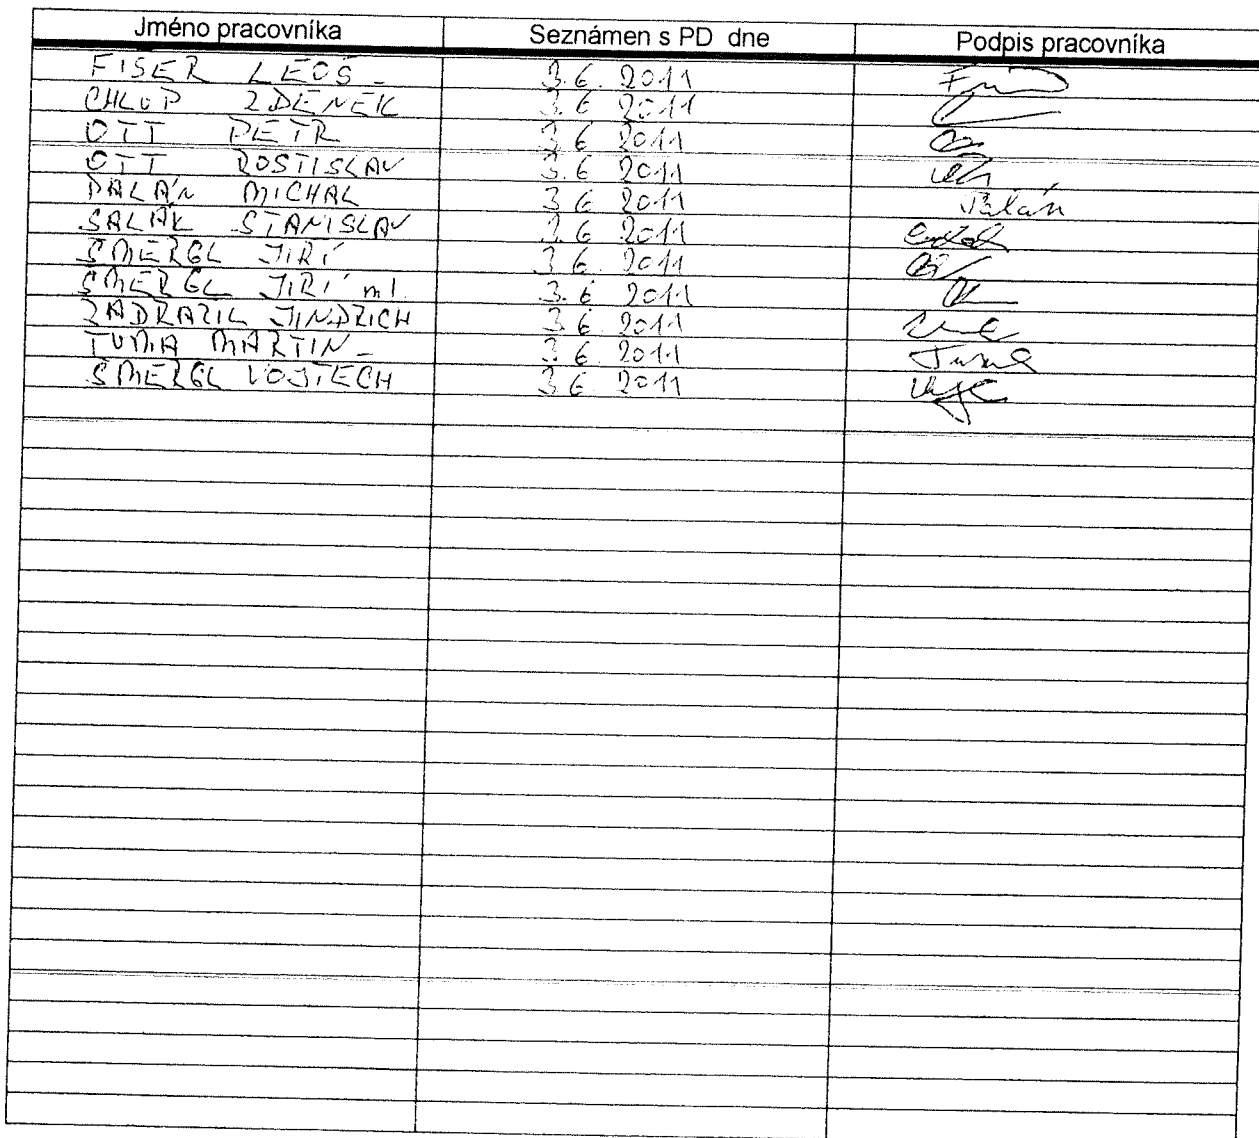 Jméno pracovníka Seznámen s PD dne Podpis pracovníka
FISER LEOŠ 3.6. 2011
CHLUP ZDENEK 3.6 2011
OTT PETR 3.6 2011
OTT ROSTISLAV 3.6 2011
PALÁN MICHAL 3.6 2011 Palán
SALÁK STANISLAV 3.6 2011
SMERGL JIRÍ 3.6. 2011
SMERGL JIRÍ ml. 3.6 2011
ZADRAZIL JINDRICH 3.6. 2011
TUMA MARTIN 3.6. 2011 Tuma
SMERGL VOJTECH 3.6. 2011